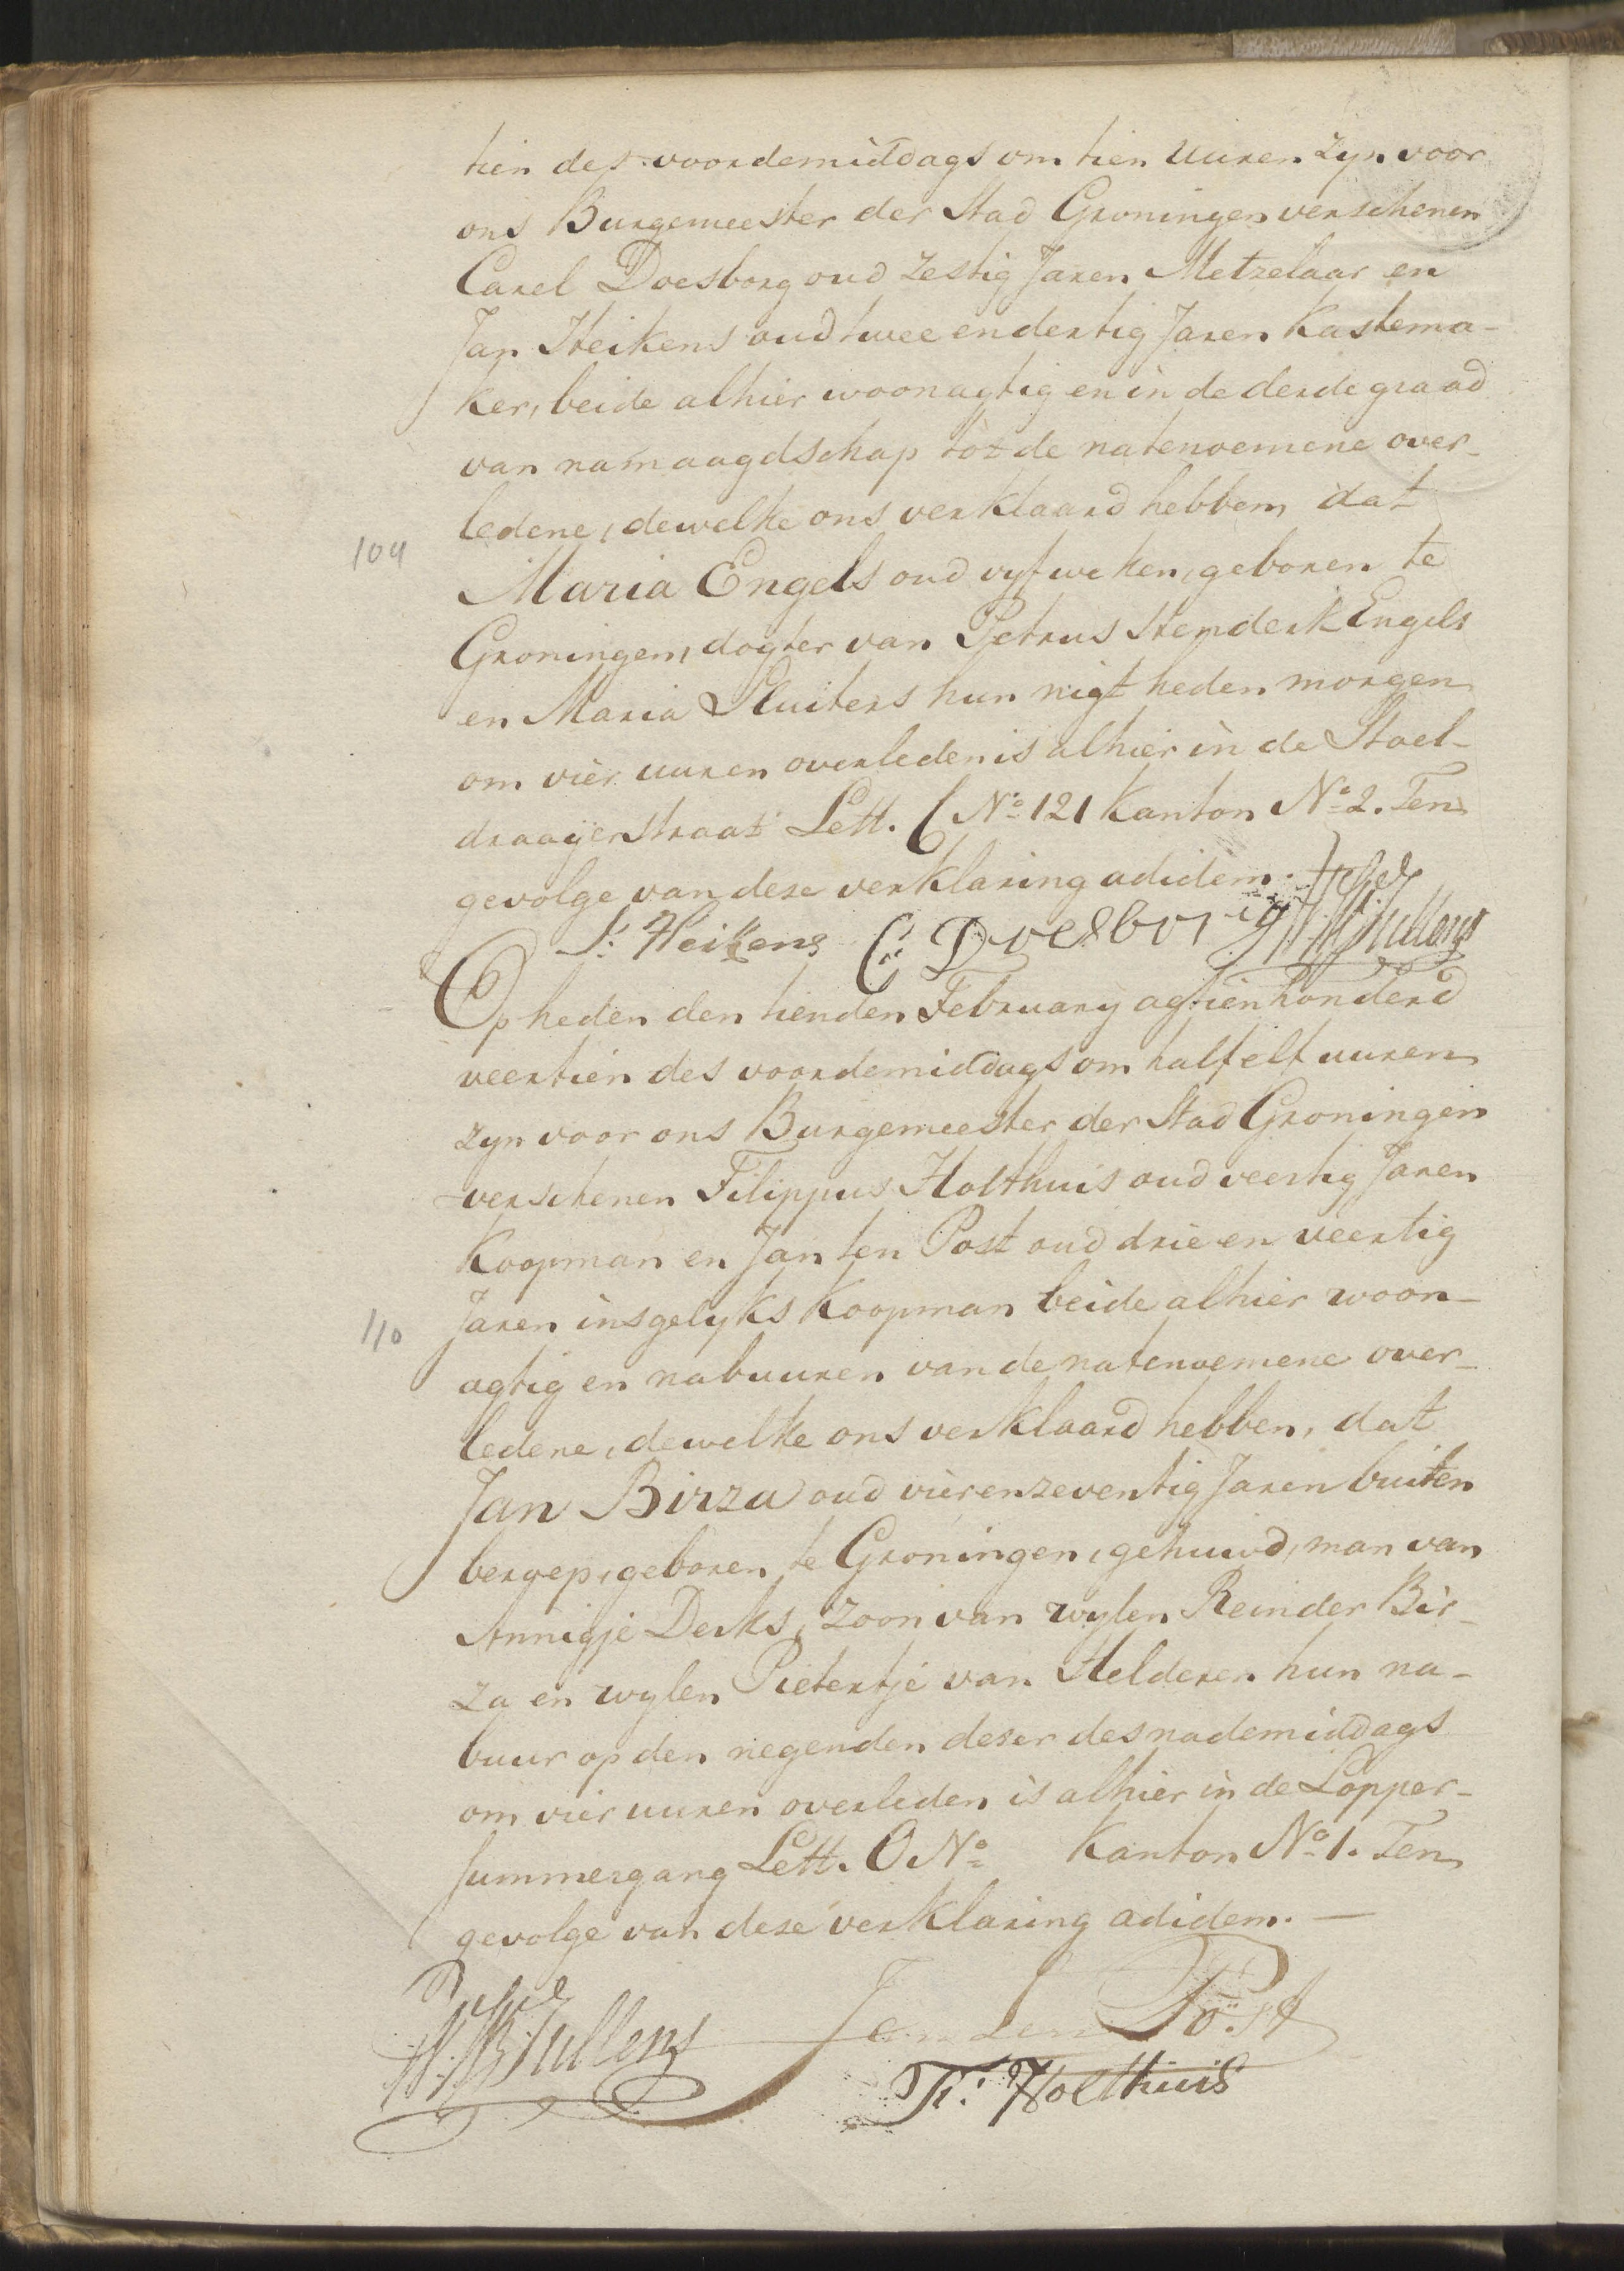 tien des voordemiddags om tien Uuren zyn voor
ons Burgemeester der Stad Groningen verschenen
Carel Doesborg oud zestig Jaren Metzelaar en
Jan Heikens oud twee en dertig Jaren Kastema-
ker, beide alhier woonagtig en in de derde graad
van namaagdschap tot de natenoemene over-
ledene, dewelke ons verklaard hebben, dat
104
Maria Engels oud vyf weken, geboren te
Groningen, dogter van Petrus Henderk Engels
en Maria Sluiters hun nigt heden morgen
om vier uuren overleden is alhier in de Stoel-
draayerstraat Lett. C No 121 Kanton No 2. Ten
gevolge van deze verklaring adidem.
J: Heikens C: Doesborg
Op heden den tienden February agtien honderd
veertien des voordemiddags om half elf uuren
zyn voor ons Burgemeester der Stad Groningen
verschenen Filippus Holthuis oud veertig Jaren
Koopman en Jan ten Post oud drie en veertig
110
Jaren insgelyks Koopman beide alhier woon-
agtig en nabuuren van de natenoemene over-
ledene, dewelke ons verklaard hebben, dat
Jan Birza oud vier en zeventig Jaren buiten
beroep, geboren te Groningen, gehuwd, man van
Annigje Derks, zoon van wylen Reinder Bir-
za en wylen Pietertje van Helderen hun na-
buur op den negenden dezer des nademiddags
om vier uuren overleden is alhier in de Lopper-
summergang Lett. O No Kanton No 1. Ten
gevolge van deze verklaring adidem. —
Jan ten Post
F: Holthuis